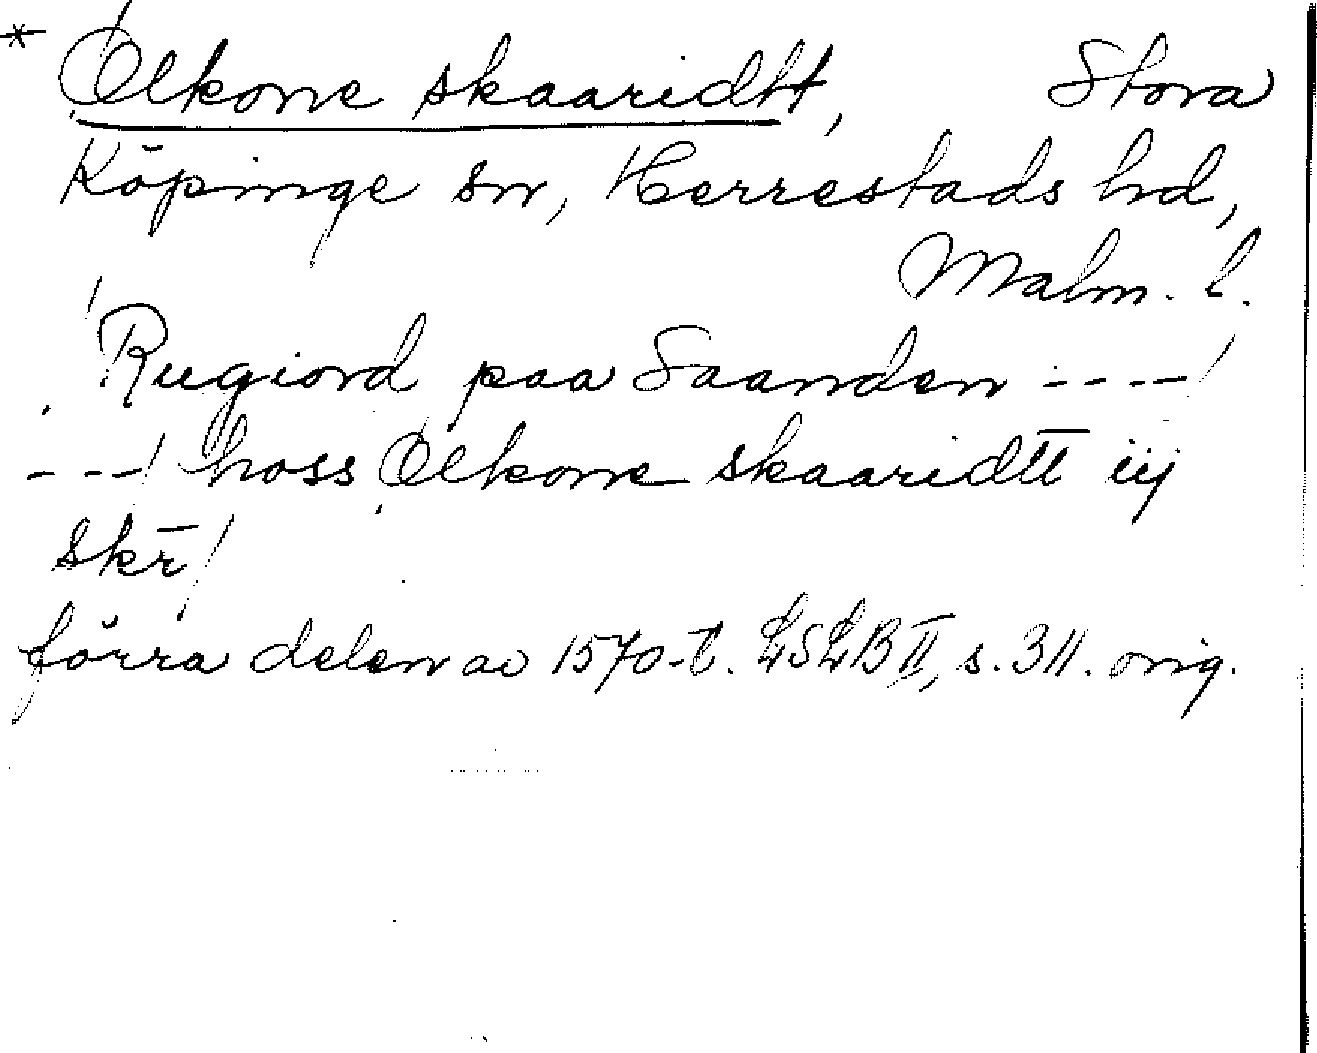 * Ølkone skaaridtt, Stora
Köpinge sn, Herrestads hd,
Malm. l.
/ Rugiord paa Saanden ----/
---/ hoss Ølkone skaaridtt iij
skr̄ /
förra delen av 1570-t. LSLB II, s. 311. orig.